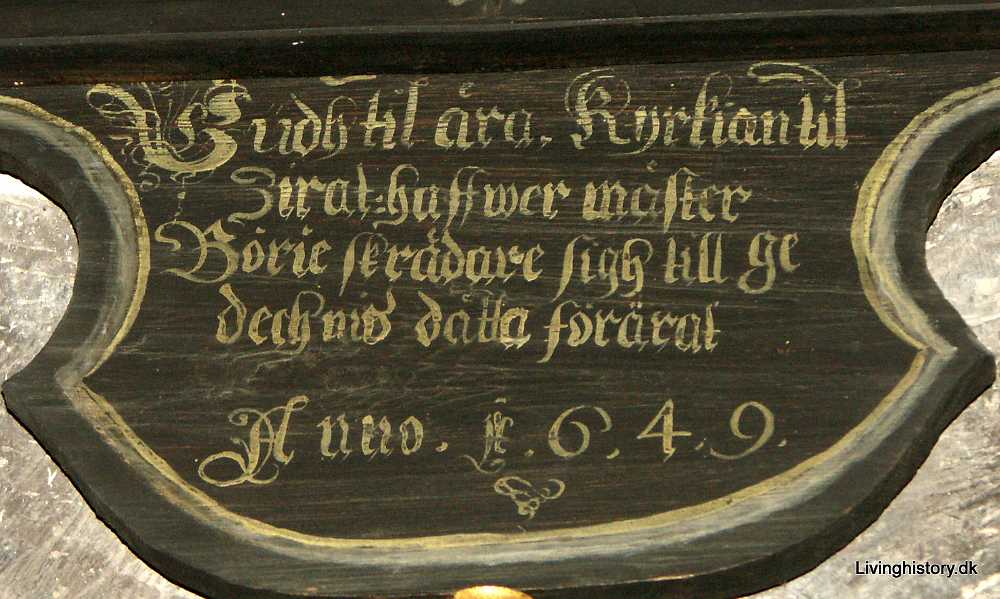 Gudh til ära. Kyrkian til
Zirat: haffwer mäster
Börie skrädare sigh till ge
dechnis dätta förärat
Anno. 1. 6. 4. 9.
Livinghistory.dk